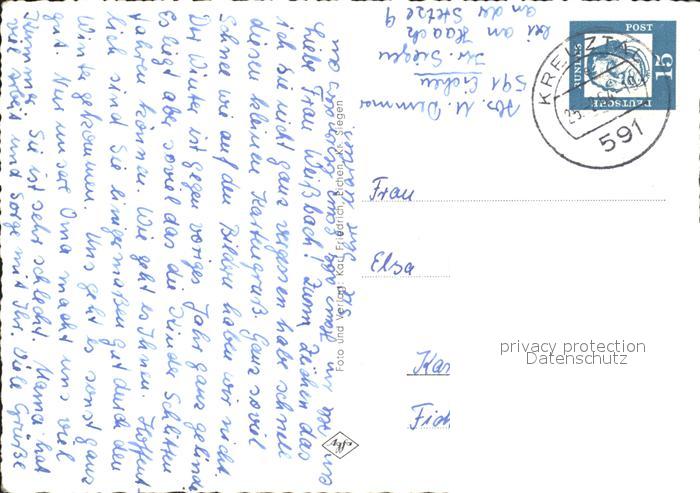 Liebe Frau Weißbach! Zum Zeichen das
ich Sie nicht ganz vergessen habe schnell
diesen kleinen Kartengruß. Ganz soviel
Schnee wie auf den Bildern haben wir nicht.
Der Winter ist gegen voriges Jahr ganz gelinde
Es liegt aber soviel das die Kinder Schlitten
fahren können. Wie geht es Ihnen. Hoffent-
lich sind Sie einigermaßen gut durch den
Winter gekommen. Uns geht es sonst ganz
gut. Nur unsere Oma macht uns viel
Kummer. Sie ist sehr schlecht. Mama hat
viel Arbeit und Sorge mit Ihr. Viele Grüße
Foto und Verlag: Karl Friedrich, Eichen, Kr. Siegen
Abs. U. Demmer
591 Eichen
Kr. Siegen
bei
an der
KREUZTAL
591
DEUTSCHE
BUNDES
POST
15
Frau
Elsa
Kar
privacy protection
Datenschutz